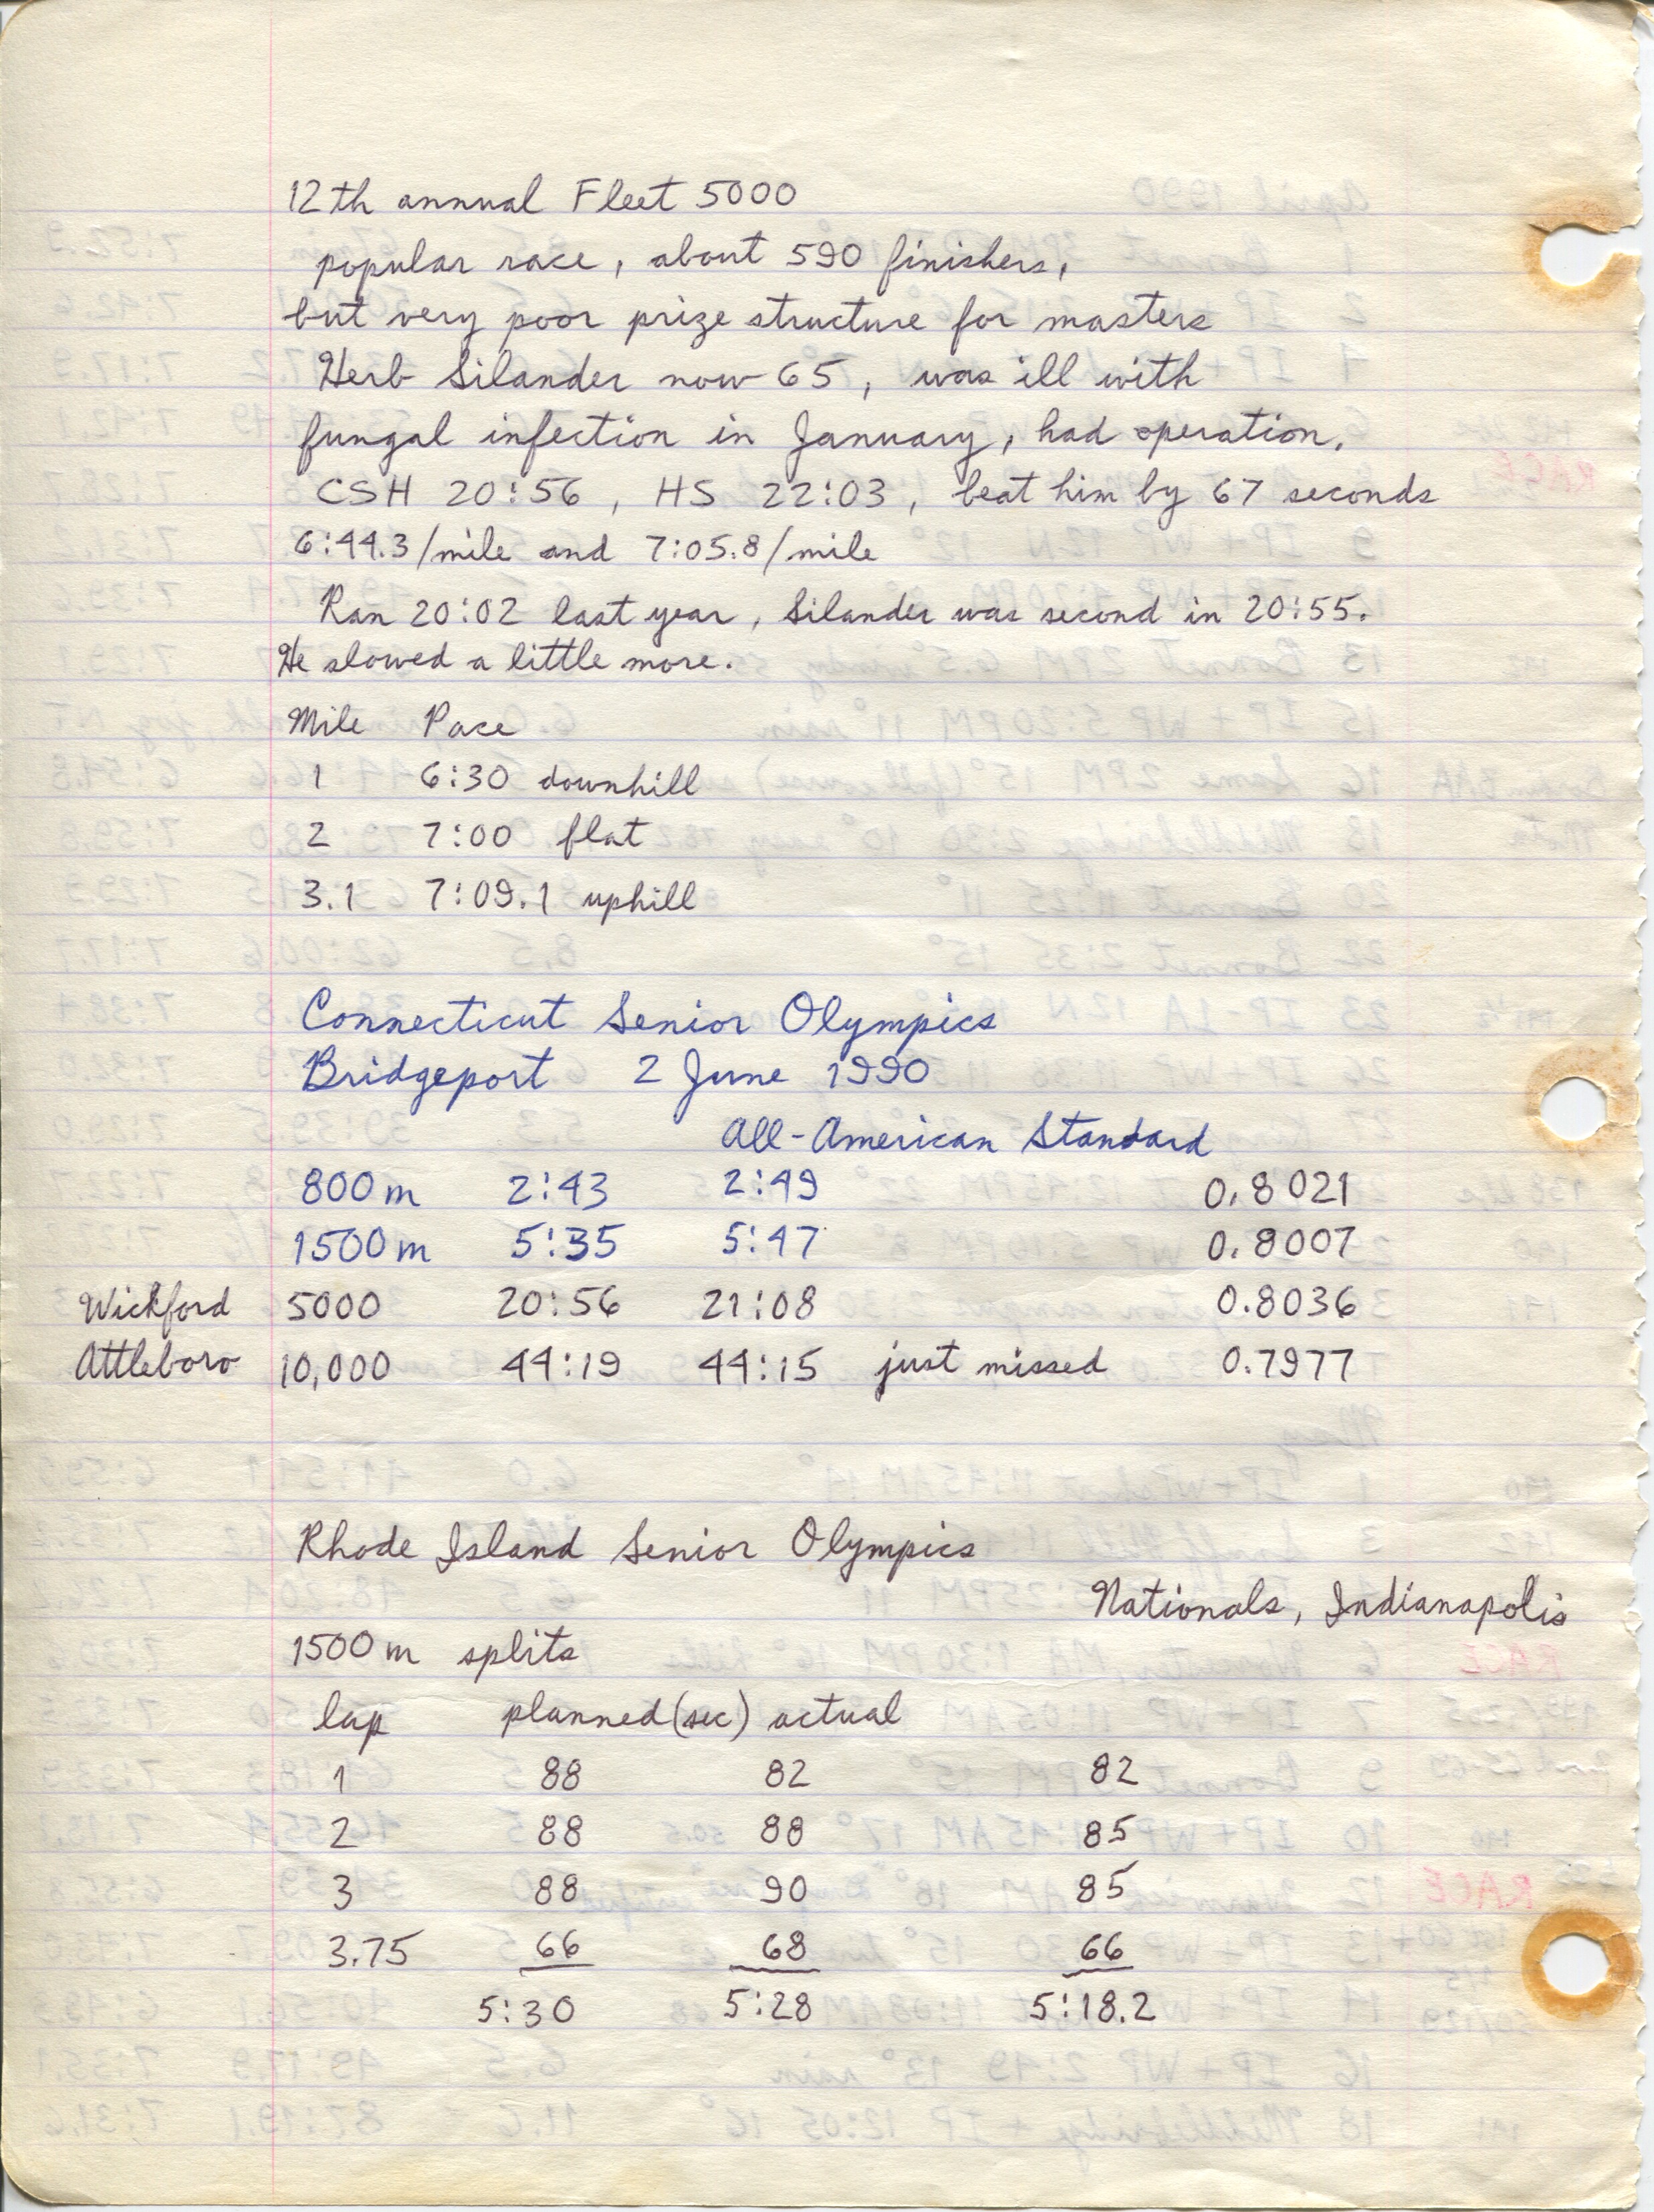 12th annual Fleet 5000
popular race, about 590 finishers,
but very poor prize structure for masters
Herb Silander now 65, was ill with
fungal infection in January, had operation.
CSH 20:56, HS 22:03, beat him by 67 seconds
6:44.3/mile and 7:05.8/mile
Ran 20:02 last year, Silander was second in 20:55.
He slowed a little more.
Mile Pace
1 6:30 downhill
2 7:00 flat
3.1 7:09.1 uphill
Connecticut Senior Olympics
Bridgeport 2 June 1990
All-American Standard
800m 2:43 2:49 0.8021
1500m 5:35 5:47 0.8007
Wickford 5000 20:56 21:08 0.8036
Attleboro 10,000 44:19 44:15 just missed 0.7977
Rhode Island Senior Olympics
Nationals, Indianapolis
1500m splits
lap planned(sec) actual
1 88 82 82
2 88 88 85
3 88 90 85
3.75 66 68 66
5:30 5:28 5:18.2